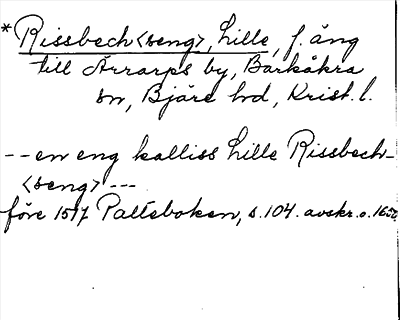 *Rissbech<seng>, Lille, f. äng
till Ärrarps by, Barkåkra
sn, Bjäre hd, Krist. l.
--en eng kalliss Lille Rissbech-
<seng>---
före 1517 Palteboken, s. 104. avskr. o. 1650